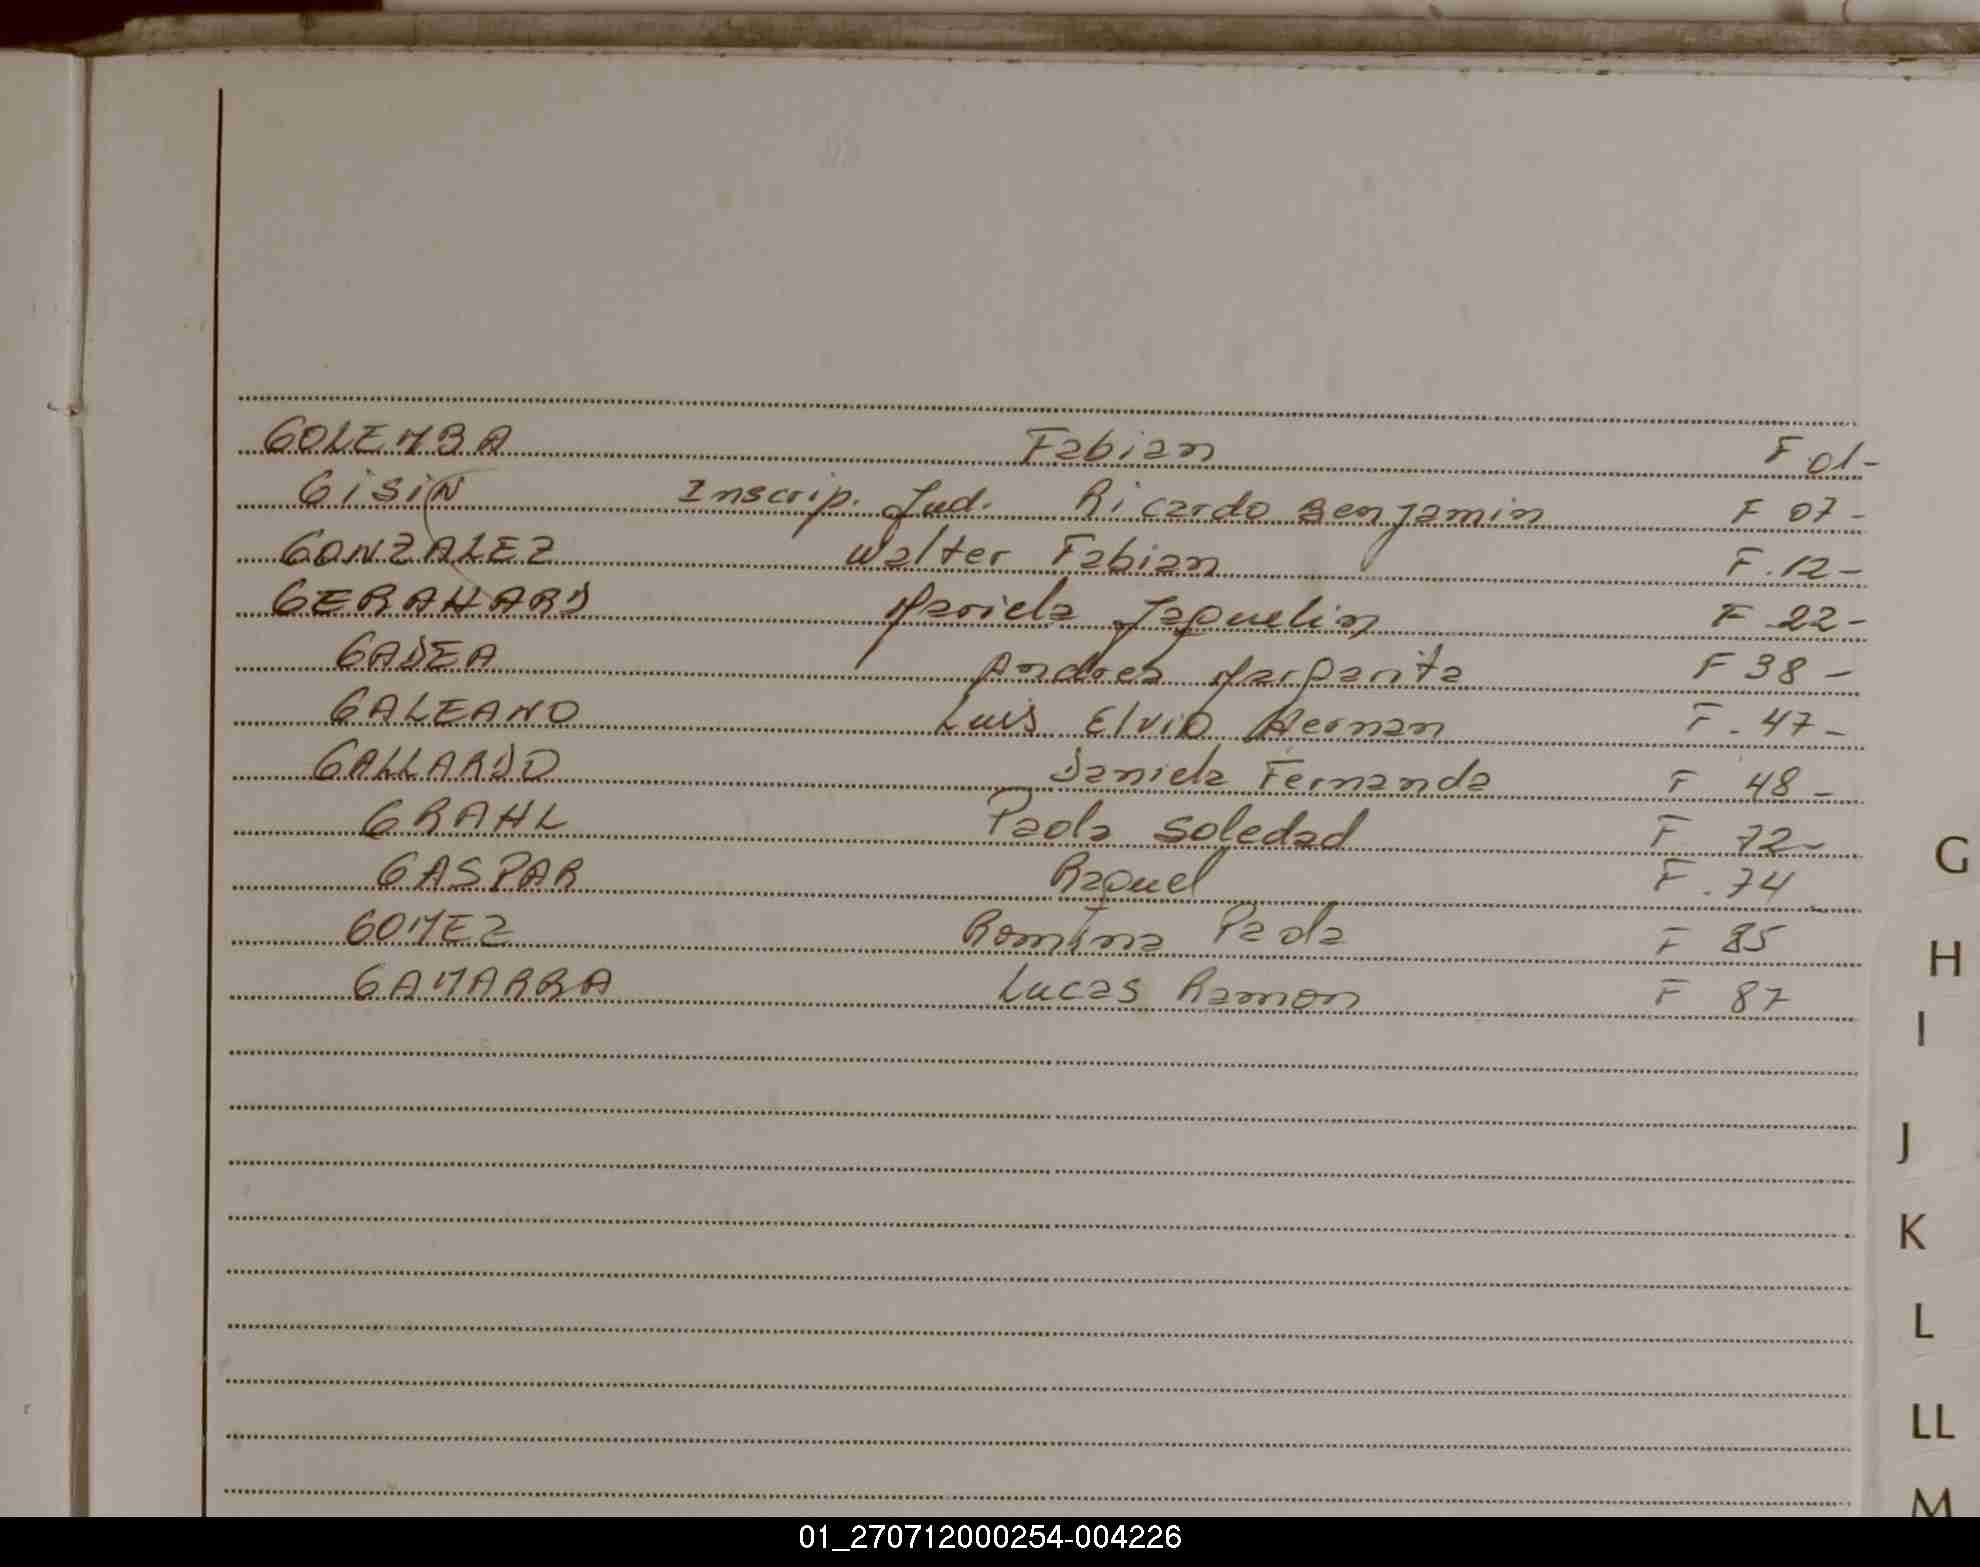 GOLEMBA Fabian F 01-
GISIN Inscrip. Jud. Ricardo Benjamin F 07-
GONZALEZ Walter Fabian F.12-
GERAHARD Mariela Jaquelin F 22-
GADEA Andrea Margarita F 38-
GALEANO Luis Elvio Hernan F. 47-
GALLARDO Daniela Fernanda F 48-
GRAHL Paola Soledad F 72-
GASPAR Raquel F. 74
GOMEZ Romina Paola F 85
GAMARRA Lucas Ramon F 87
G
H
I
J
K
L
LL
M
01_270712000254-004226